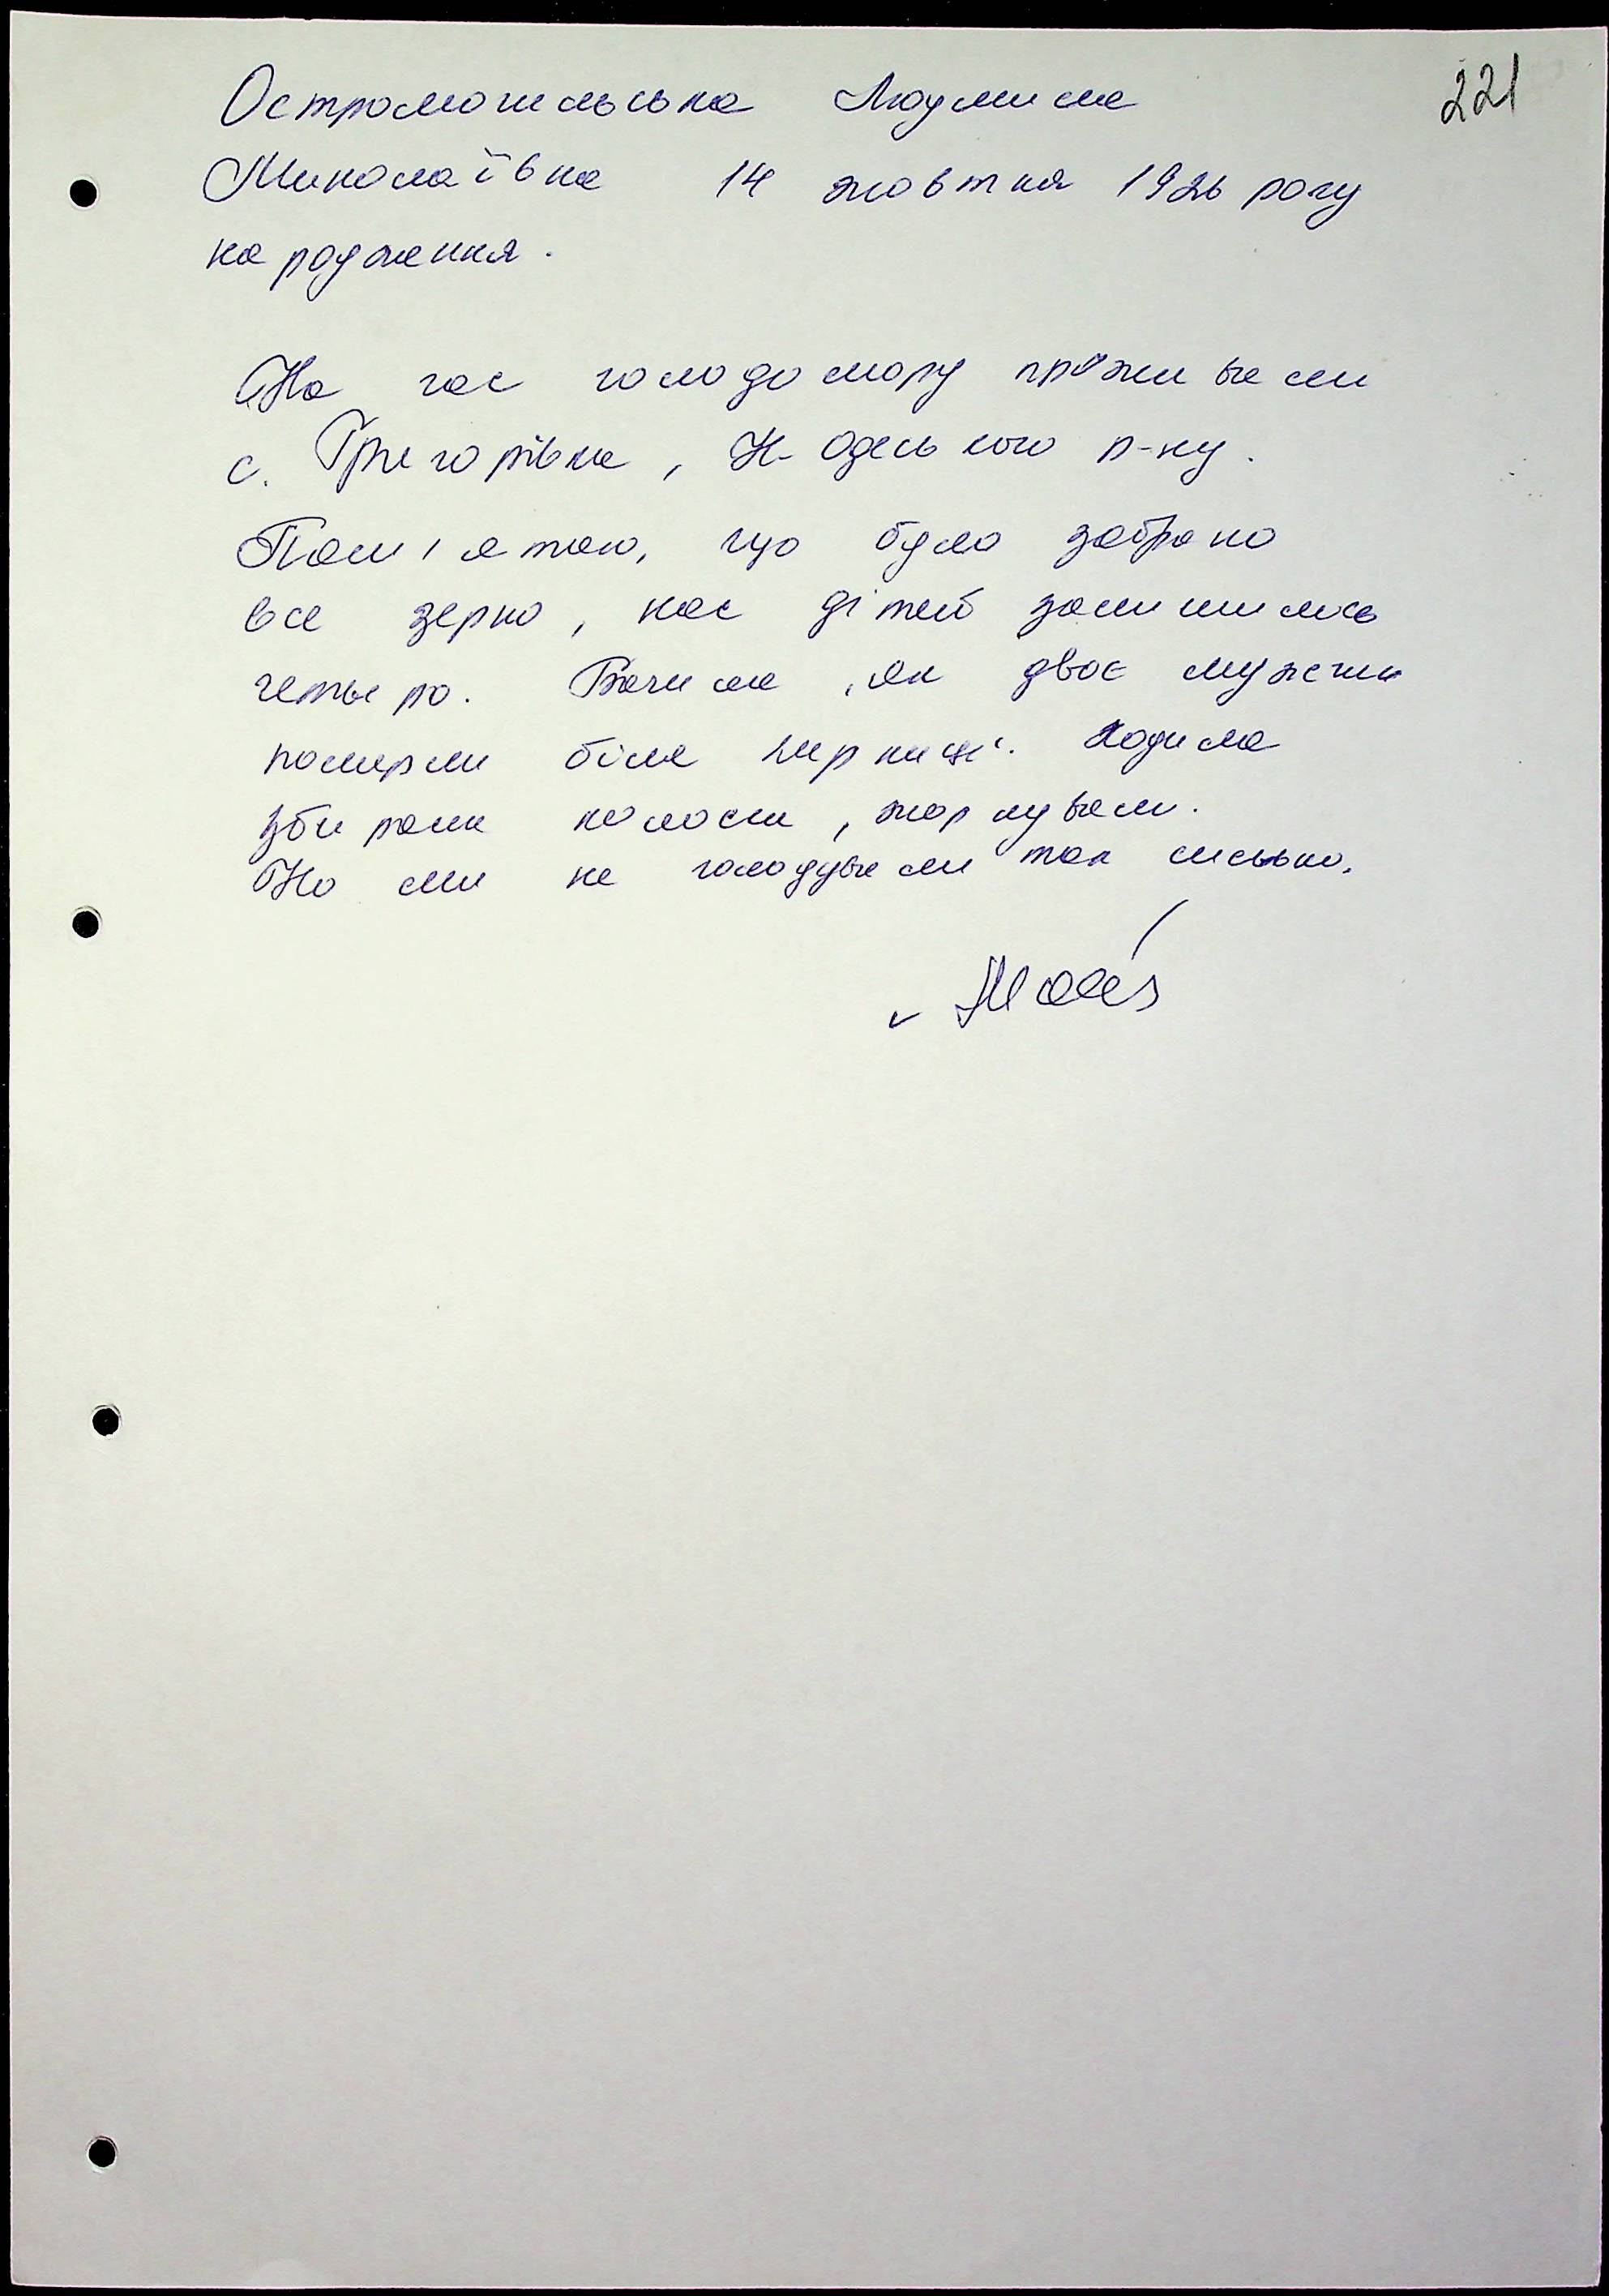 Остромогильська Людмила 221
Миколаївна 14 жовтня 1926 року
народження.
На час голодомору проживали
с. Григорівка, Н-Одеського р-ну.
Пам'ятаю, що було забрано
все зерно, нас дітей залишилось
четверо. Бачила, як двоє мужчин
померли біля кирниці. Ходила
збирали колоски,
Но ми не голодували так сильно.